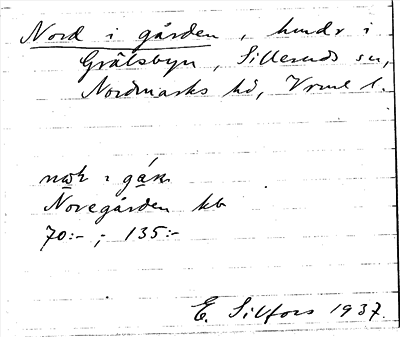 Nord i gården, hmdr i
Grälsbyn, Silleruds sn,
Nordmarks hd, Vrml l.
i
Noregården kb
70:- ; 135:-
E. Silfors 1937.